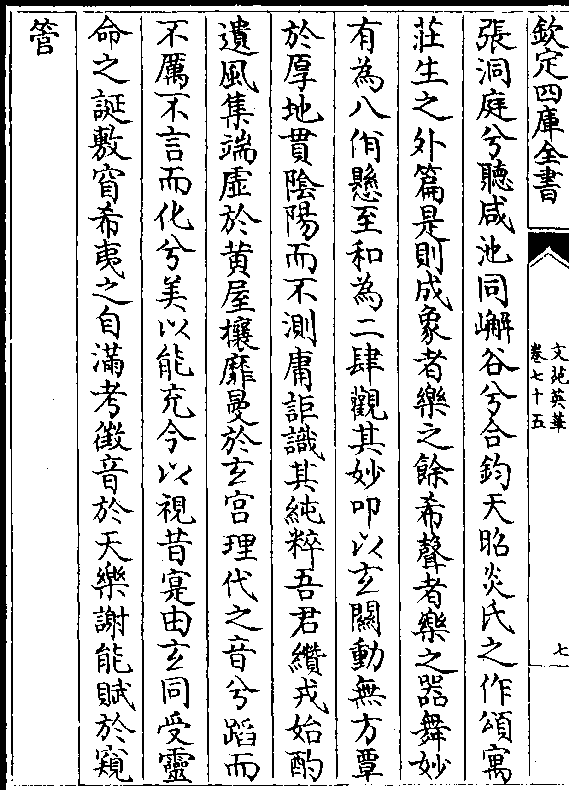 欽定四庫全書
文苑英華
卷七十五
七
張洞庭兮聽咸池同嶰谷兮合鈞天昭炎氏之作頌寓
莊生之外篇是則成象者樂之餘希聲者樂之器舞妙
有為八佾懸至和為二肆觀其妙叩以玄關動無方覃
於厚地貫陰陽而不測庸詎識其純粹吾君纘戎始酌
遺風集端虛於黄屋攘靡曼於玄宫理代之音兮蹈而
不厲不言而化兮美以能充今以視昔寔由玄同受靈
命之誕敷窅希夷之自滿考徵音於天樂謝能賦於窺
管